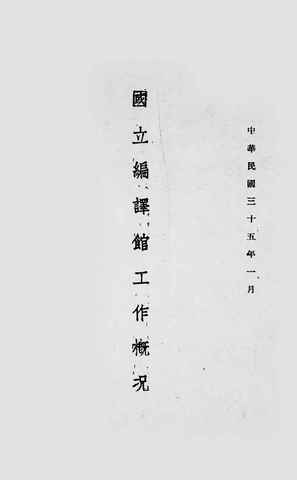 中華民國三十五年一月
國立編譯館工作概況